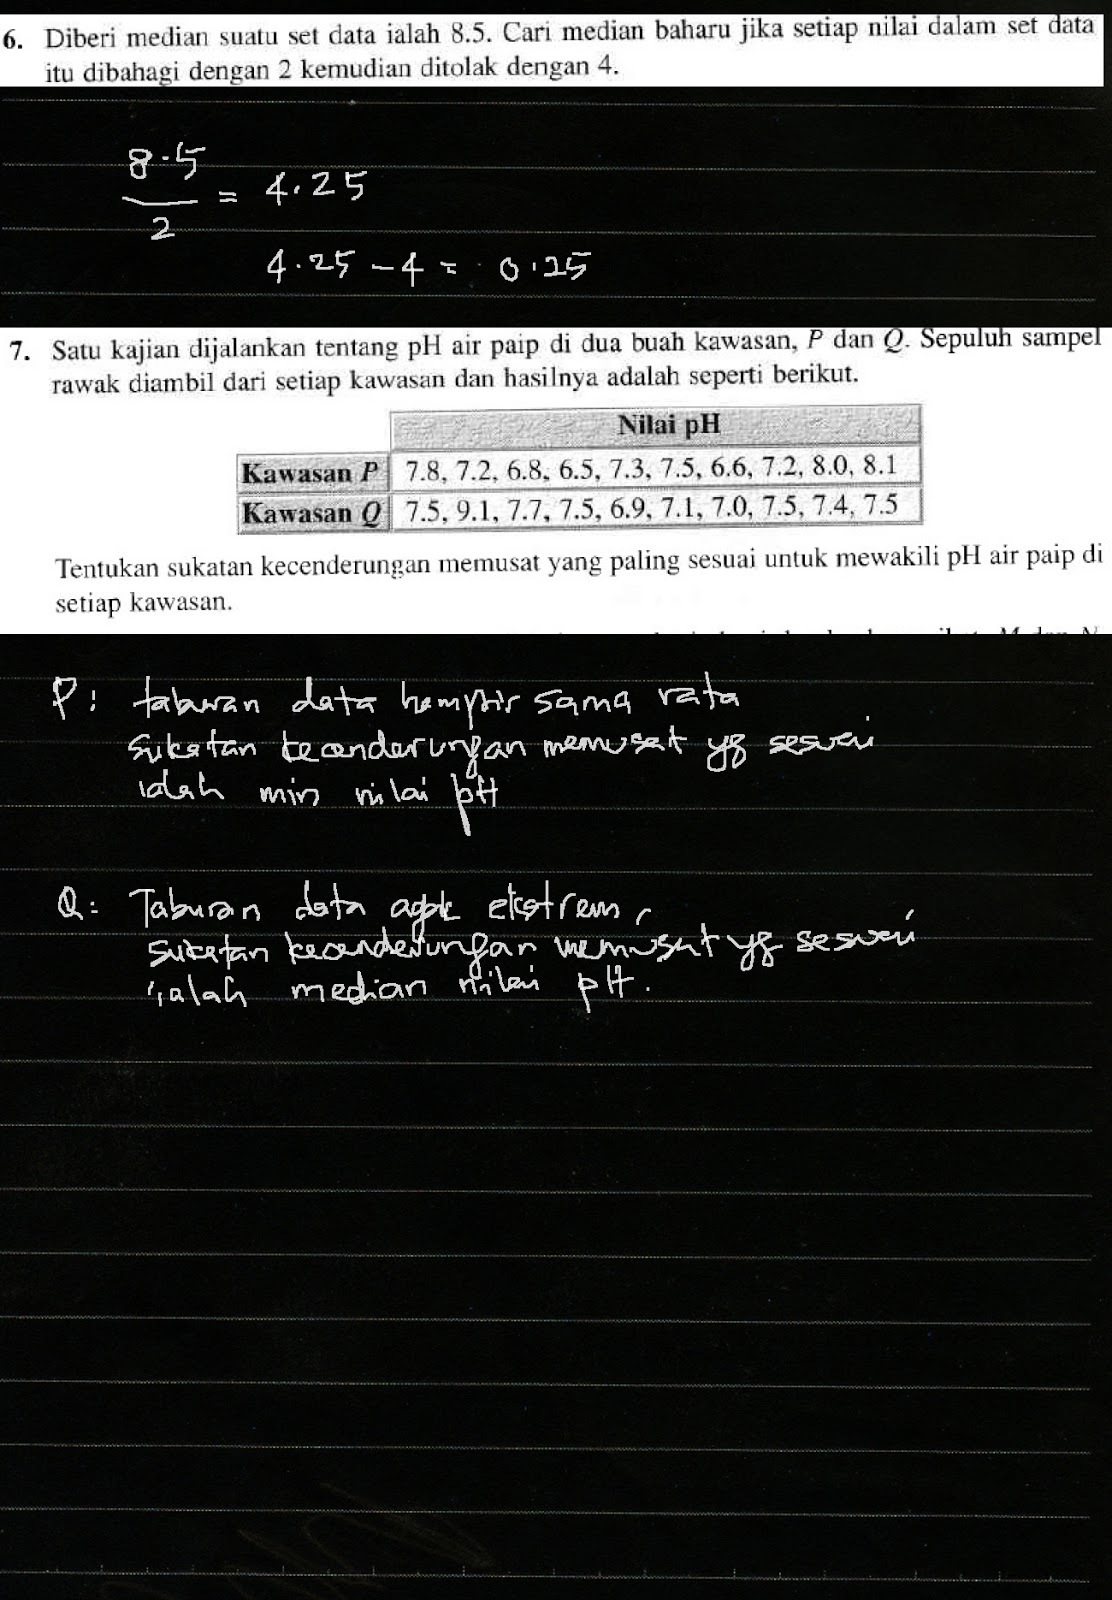 6. Diberi median suatu set data ialah 8.5. Cari median baharu jika setiap nilai dalam set data
itu dibahagi dengan 2 kemudian ditolak dengan 4.
8.5
= 4.25
2
4.25 - 4 = 0.25
7. Satu kajian dijalankan tentang pH air paip di dua buah kawasan, P dan Q. Sepuluh sampel
rawak diambil dari setiap kawasan dan hasilnya adalah seperti berikut.
Nilai pH
Kawasan P 7.8, 7.2, 6.8, 6.5, 7.3, 7.5, 6.6, 7.2, 8.0, 8.1
Kawasan Q 7.5, 9.1, 7.7, 7.5, 6.9, 7.1, 7.0, 7.5, 7.4, 7.5
Tentukan sukatan kecenderungan memusat yang paling sesuai untuk mewakili pH air paip di
setiap kawasan.
P: taburan data hampir sama rata
sukatan kecenderungan memusat yg sesuai
ialah min nilai pH
Q: Taburan data agak ekstrem,
sukatan kecenderungan memusat yg sesuai
ialah median nilai pH.